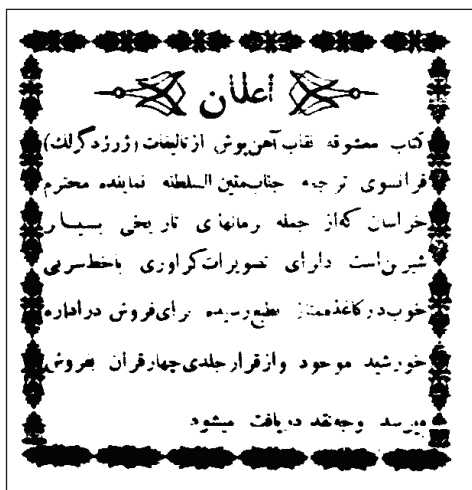 اعلان
کتاب معشوقه نقاب آهن پوش از تالیفات (ژرژدگرلک)
فرانسوی ترجمه جناب متین السلطنه نماینده محترم
خراسان که از جمله رمانهای تاریخی بسیار
شیرین است دارای تصویرات گراوری با خط سربی
خوب در کاغذ ممتاز بطبع رسیده برای فروش در اداره
خورشید موجود و از قرار جلدی چهار قران بفروش
میرسد وجه نقد دریافت میشود